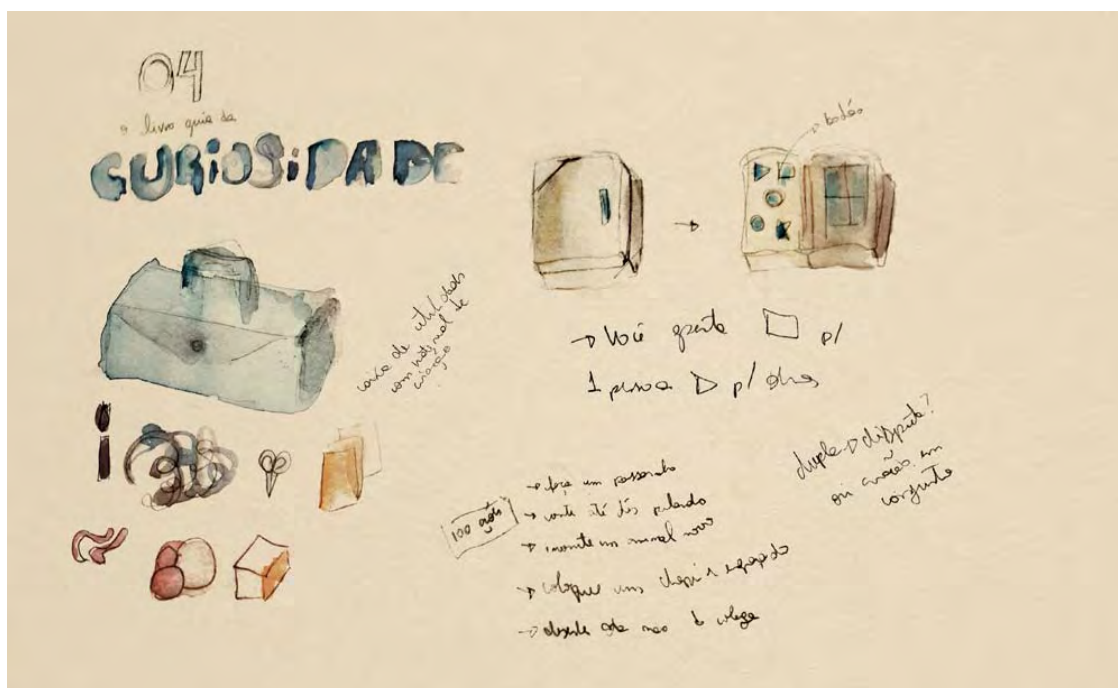 04
o livro guia da
CURiOSiDADE
→ botões
caixa de utilidades
com material de
criação
→ Você p/
1 pessoa ▷ p/ duas
100 ações
→ faça um passarinho
→ conte até três pulando
→ invente um animal novo
→ coloque um chapéu engraçado
→ desenhe da mao do colega
dupla → disputa?
ou criação em
conjunto